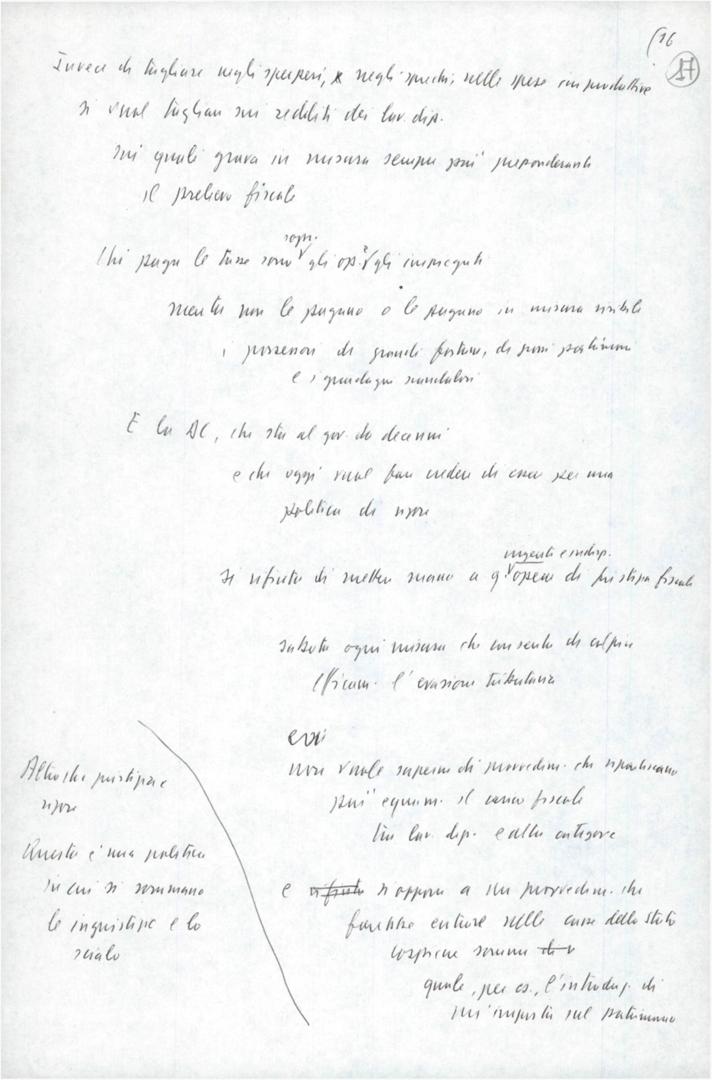 16
17
Invece di tagliare negli sperperi, negli sprechi, nelle spese improduttive
si vuol tagliare sui redditi dei lav. dip.
sui quali grava in misura sempre più preponderante
il prelievo fiscale
Chi paga le tasse sono sopr. gli op. e gli impiegati
mentre non le pagano o le pagano in misura
i possessori di grandi fortune, di grossi patrimoni
e i guadagni scandalosi
E la DC, che sta al gov. da decenni
e che oggi vuol far credere di esser per una
politica di rigore
si rifiuta di metter mano a q. opera di giustizia fiscale
urgente e indisp.
sabota ogni misura che consenta di colpire
efficacem. l'evasione tributaria
non vuole saperne di provvedim. che ripartiscano
più equam. il carico fiscale
tra lav. dip. e altre categorie
e rifiuta si oppone a un provvedim. che
farebbe entrare nelle casse dello Stato
cospicue somme
quale, per es., l'introduz. di
un'imposta sul patrimonio
Altro che giustizia e
rigore
Questa è una politica
in cui si sommano
le ingiustizie e lo
scialo